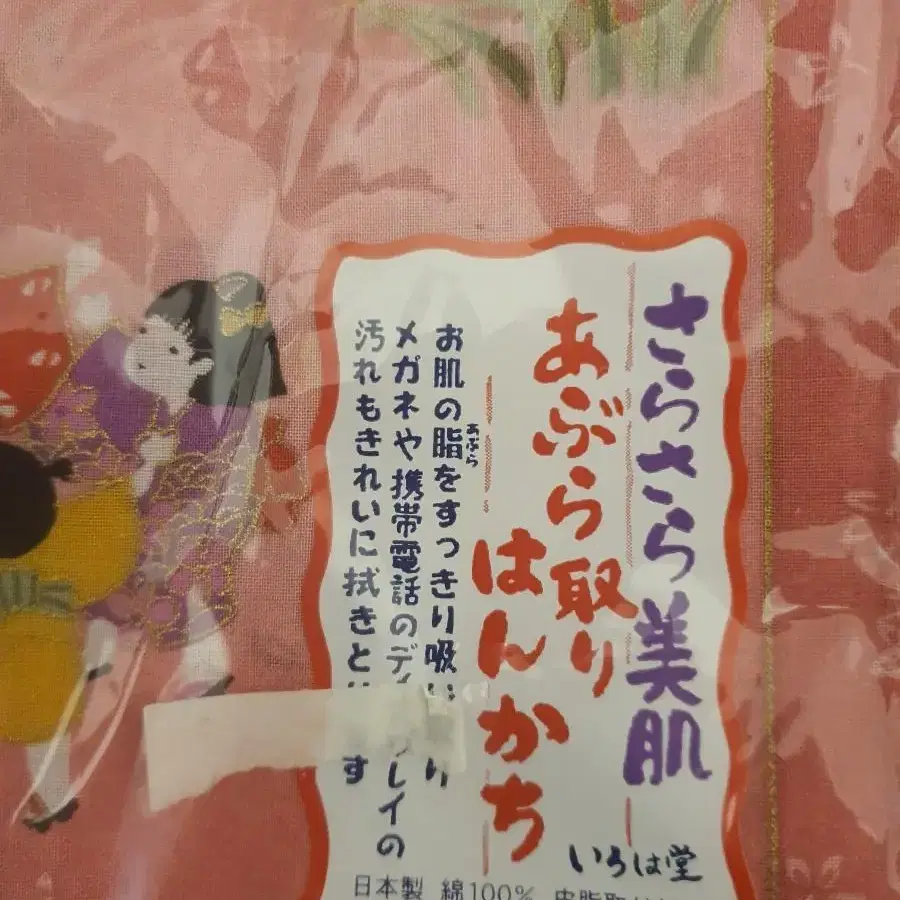 さらさら美肌
あぶら取り
はんかち
いろは堂
あぶら
お肌の脂をすっきり吸い
メガネや携帯電話のディ レイの
汚れもきれいに拭きと す
日本製 綿100%